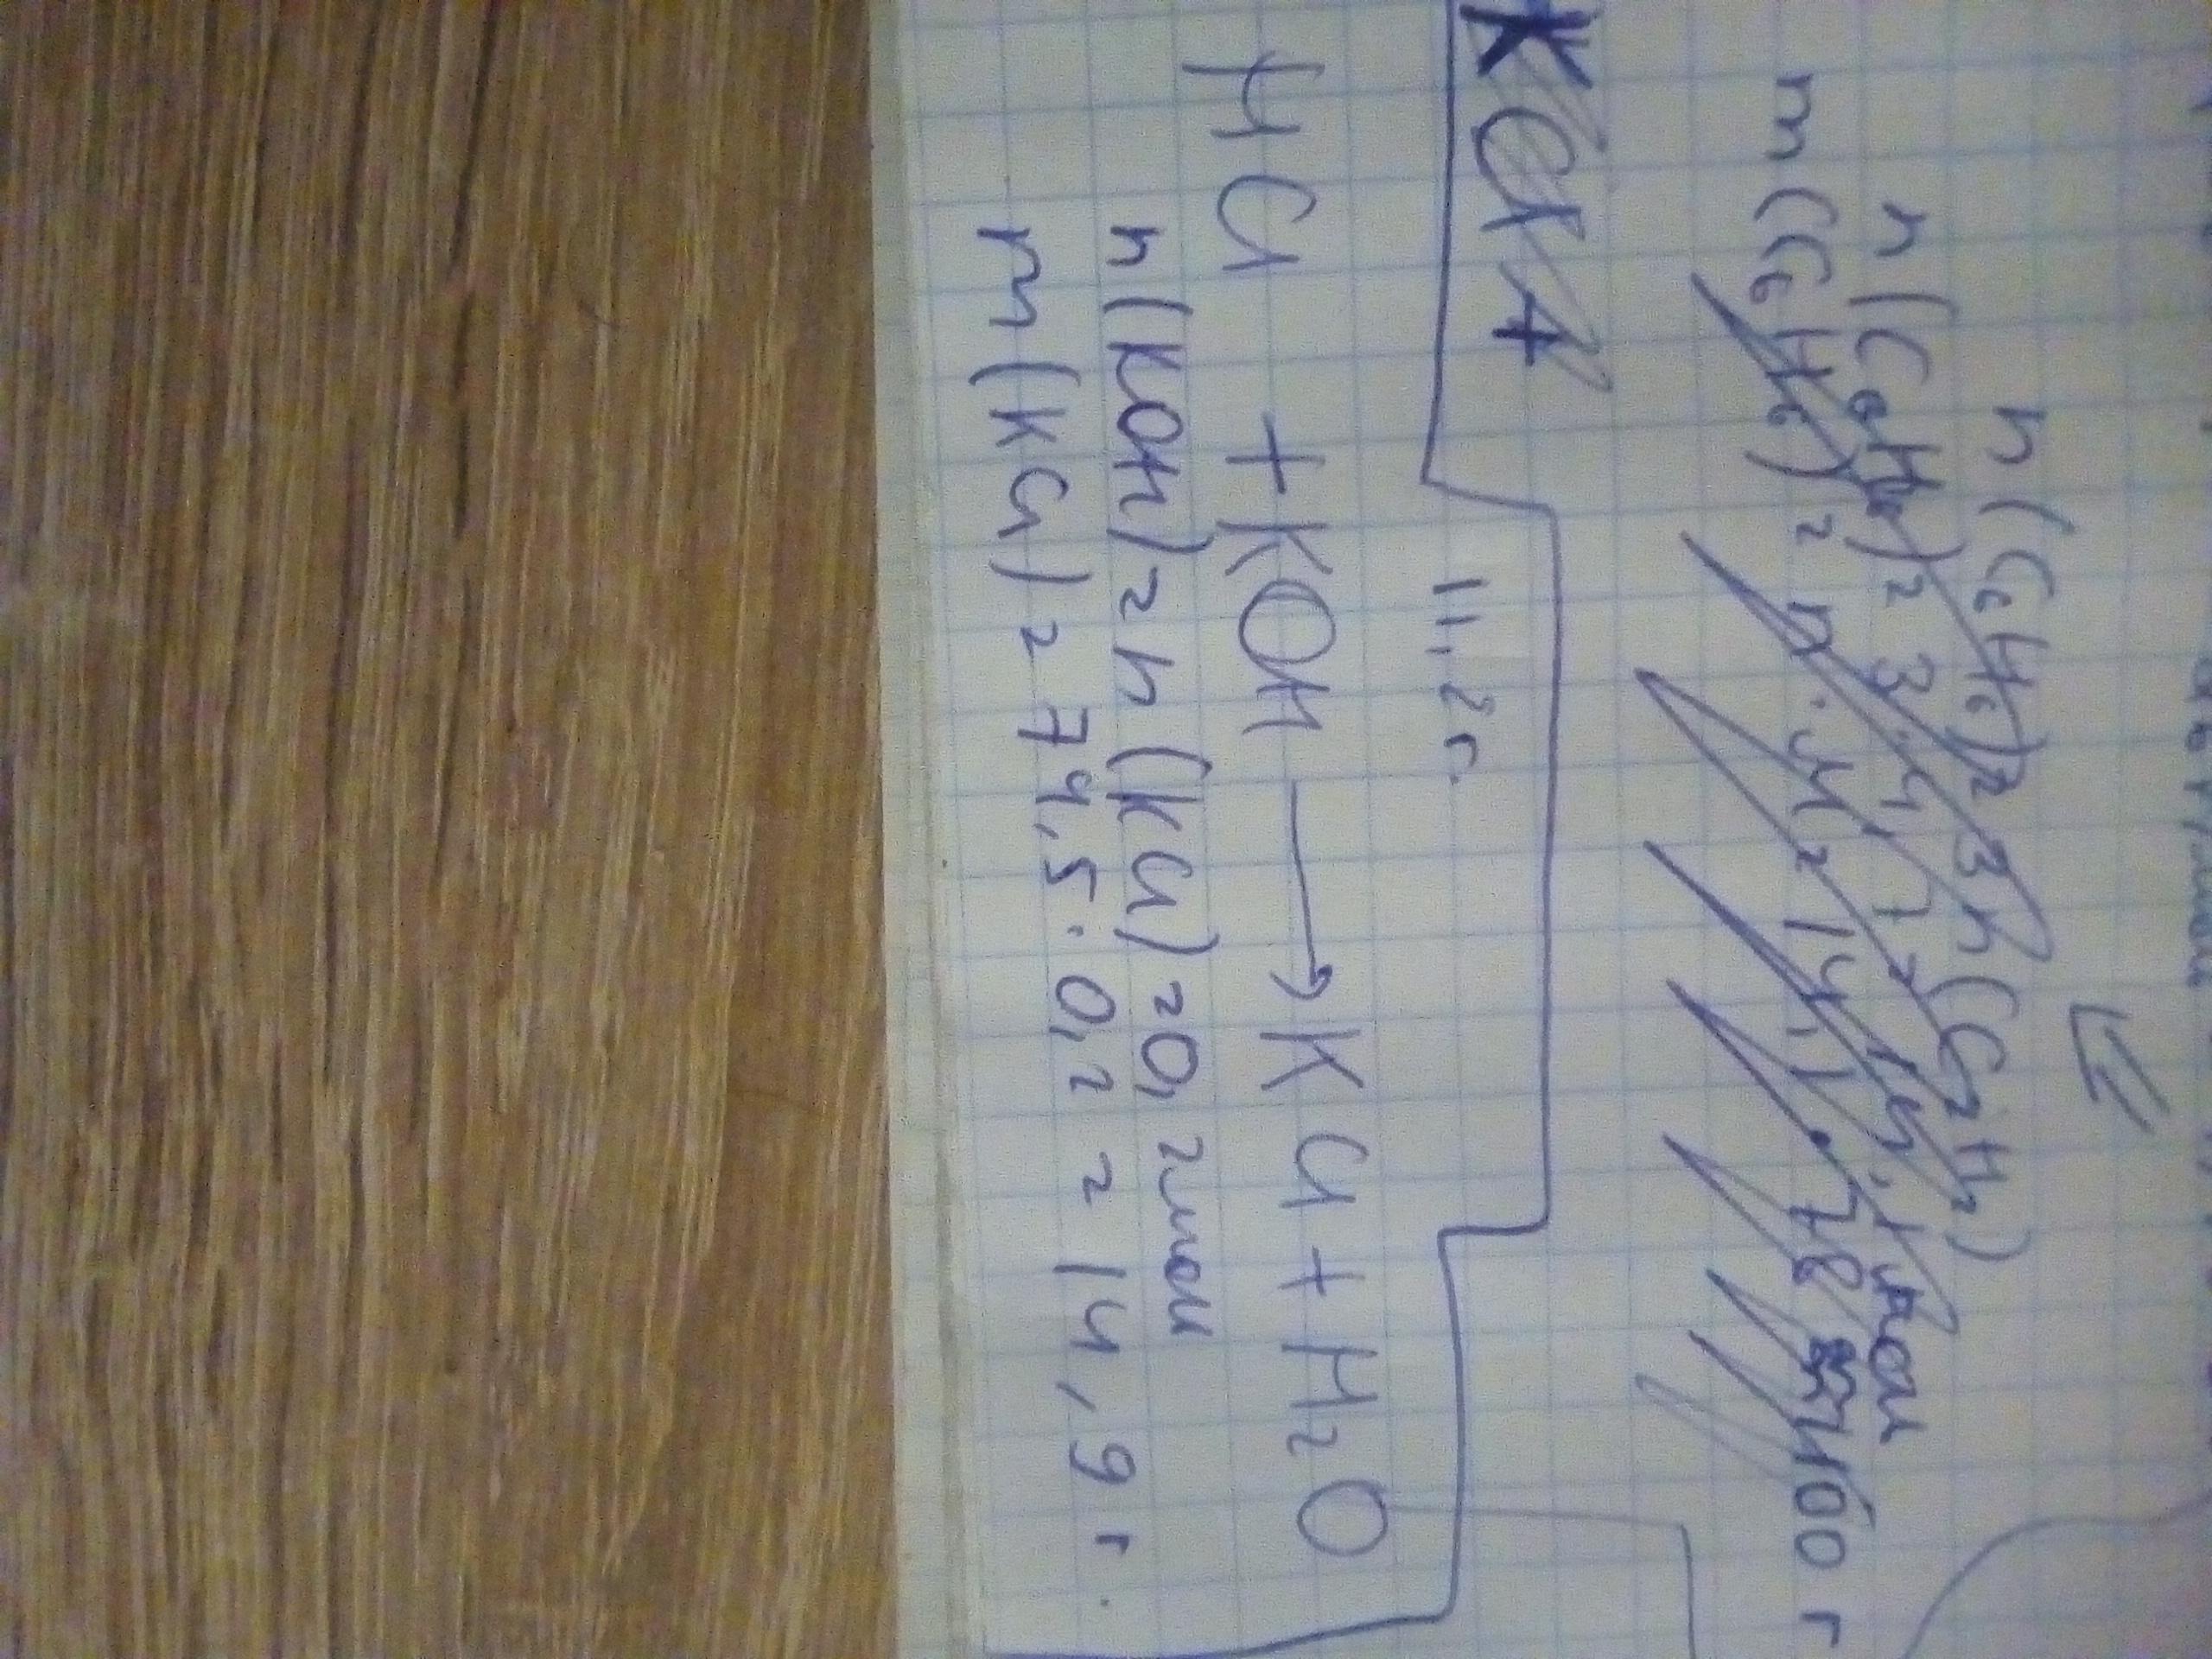 n(C₆H₆) = 3n(C₂H₂)
n(C₆H₆) = 3 · 4,7 = 14,1 моль
m(C₆H₆) = n · M = 14,1 · 78 1100 г
KCl +
11,2 г.
HCl + KOH → KCl + H₂O
n(KOH) = n(KCl) = 0,2 моль
m(KCl) = 74,5 · 0,2 = 14,9 г.